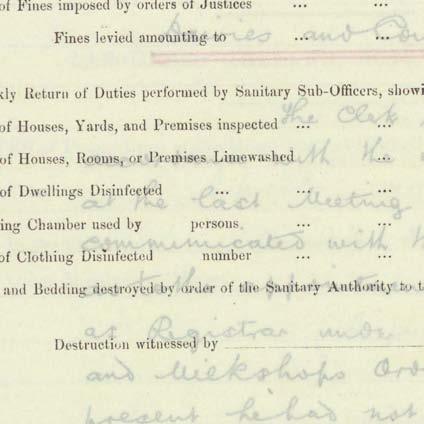 of Fines imposed by orders of Justices ... ...
Fines levied amounting to ... ...
Dairies and Cow
kly Return of Duties performed by Sanitary Sub-Officers, showi
The Clerk
of Houses, Yards, and Premises inspected ... ...
of Houses, Rooms, or Premises Limewashed ... ...
with the
of Dwellings Disinfected ... ... ...
at the last Meeting
ing Chamber used by persons. ... ...
communicated with
of Clothing Disinfected number ... ...
and Bedding destroyed by order of the Sanitary Authority to t
as Registrar under
Destruction witnessed by
and Milkshops Ord
present he had not